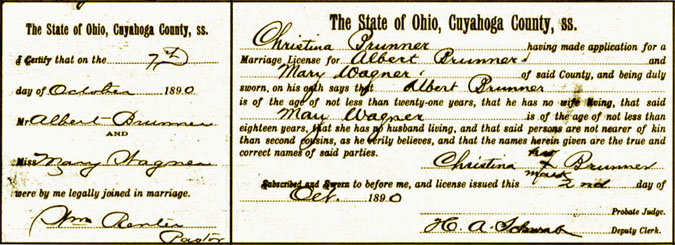 The State of Ohio, Cuyahoga County, ss.
I Certify that on the 7th
day of October 1890
Mr. Albert Brunner
AND
Miss Mary Wagner
were by me legally joined in marriage.
Wm
Pastor
The State of Ohio, Cuyahoga County, ss.
Christina Brunner having made application for a
Marriage License for Albert Brunner and
Mary Wagner of said County, and being duly
sworn, on his oath says that Albert Brunner
is of the age of not less than twenty-one years, that he has no wife living, that said
Mary Wagner is of the age of not less than
eighteen years, that she has no husband living, and that said persons are not nearer of kin
than second cousins, as he verily believes, and that the names herein given are the true and
correct names of said parties.
her
Christina X Brunner
mark
Subscribed and Sworn to before me, and license issued this 2nd day of
Oct. 1890
Probate Judge.
H. A. Schwab Deputy Clerk.